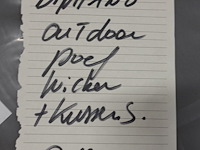 outdoor
poef
wicker
+ Kussens.